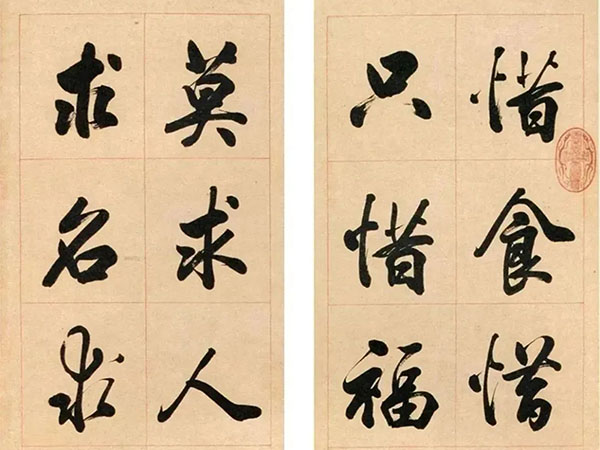 惜食惜
只惜福
莫求人
求名求